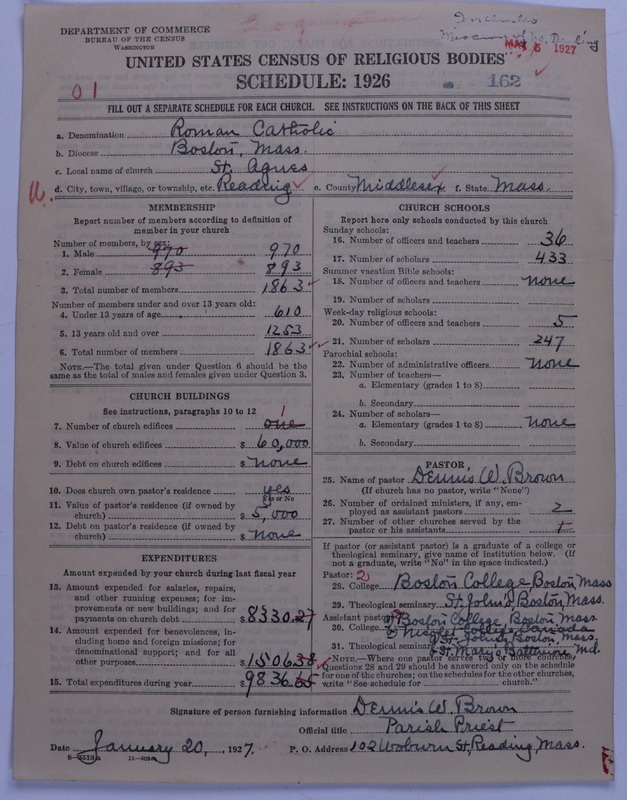 DEPARTMENT OF COMMERCE
BUREAU OF THE CENSUS
WASHINGTON
Includes
MAR 5 1927
UNITED STATES CENSUS OF RELIGIOUS BODIES
SCHEDULE: 1926
162
01
FILL OUT A SEPARATE SCHEDULE FOR EACH CHURCH. SEE INSTRUCTIONS ON THE BACK OF THIS SHEET
a. Denomination Roman Catholic
b. Diocese Boston, Mass.
c. Local name of church St. Agnes
d. City, town, village, or township, etc. Reading e. County Middlesex f. State Mass.
MEMBERSHIP
Report number of members according to definition of
member in your church
Number of members, by sex:
1. Male 970 970
2. Female 893 893
3. Total number of members 1863
Number of members under and over 13 years old:
4. Under 13 years of age 610
5. 13 years old and over 1253
6. Total number of members 1863
NOTE.—The total given under Question 6 should be
same as the total of males and females given under Question 3.
CHURCH BUILDINGS
See instructions, paragraphs 10 to 12
1
7. Number of church edifices one
8. Value of church edifices $ 60,000
9. Debt on church edifices $ none
10. Does church own pastor's residence yes
Yes or No
11. Value of pastor's residence (if owned by
church) $ 5,000
12. Debt on pastor's residence (if owned by
church) $ none
EXPENDITURES
Amount expended by your church during last fiscal year
13. Amount expended for salaries, repairs,
and other running expenses; for im-
provements or new buildings; and for
payments on church debt $ 8330.27
14. Amount expended for benevolences, in-
cluding home and foreign missions; for
denominational support; and for all
other purposes $ 1506.38
15. Total expenditures during year $ 9836.65
CHURCH SCHOOLS
Report here only schools conducted by this church
Sunday schools:
16. Number of officers and teachers 36
17. Number of scholars 433
Summer vacation Bible schools:
18. Number of officers and teachers none
19. Number of scholars
Week-day religious schools:
20. Number of officers and teachers 5
21. Number of scholars 247
Parochial schools:
22. Number of administrative officers none
23. Number of teachers—
a. Elementary (grades 1 to 8)
b. Secondary
24. Number of scholars—
a. Elementary (grades 1 to 8) none
b. Secondary
PASTOR
25. Name of pastor Dennis W. Brown
(If church has no pastor, write "None")
26. Number of ordained ministers, if any, em-
ployed as assistant pastors 2
27. Number of other churches served by the
pastor or his assistants 1
If pastor (or assistant pastor) is a graduate of a college or
theological seminary, give name of institution below. (If
not a graduate, write "No" in the space indicated.)
Pastor: 2
28. College Boston College, Boston, Mass
29. Theological seminary St. John's, Boston, Mass.
Assistant pastor: Boston College, Boston, Mass.
30. College College Canada
St. John's, Boston, Mass.
31. Theological seminary St. Mary's Md.
NOTE.—Where one pastor serves two or more churches,
Questions 28 and 29 should be answered only on the schedule
for one of the churches; on the schedules for the other churches,
write "See schedule for church."
Signature of person furnishing information Dennis W. Brown
Official title Parish Priest
Date January 20, 1927. P. O. Address 102 Woburn St, Reading, Mass.